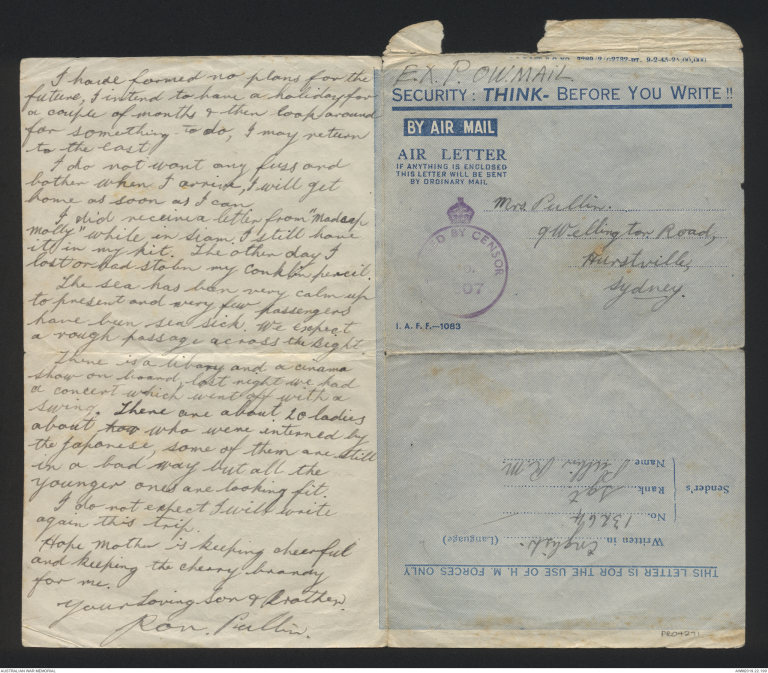 I have formed no plans for the
future, I intend to have a holiday for
a couple of months & then look around
for something to do, I may return
to the East
I do not want any fuss and
bother when I arrive, I will get
home as soon as I can.
I did receive a letter from "Madcap
Molly" while in Siam. I still have
it in my kit. The other day I
lost or had stolen my Conklin pencil.
The sea has ben very calm up
to present and very few passengers
have been sea sick. We expect
a rough passage across the Bight.
There is a libary and a cinama
show on board, last night we had
a concert which went off with a
swing. There are about 20 ladies
about who were interned by
the Japanese, some of them are still
in a bad way but all the
younger ones are looking fit.
I do not expect I will write
again this trip.
Hope Mother is keeping cheerful
and keeping the cherry brandy
for me.
Your Loving Son & Brother.
Ron. Pullin.
9-2-45-25,00,000
E.X. P.OW. MAIL
SECURITY: THINK- BEFORE YOU WRITE !!
BY AIR MAIL
AIR LETTER
IF ANYTHING IS ENCLOSED
THIS LETTER WILL BE SENT
BY ORDINARY MAIL
Mrs. Pullin.
9 Wellington Road,
Hurstville,
Sydney.
D BY CENSOR
I. A. F. F.—1083
THIS LETTER IS FOR THE USE OF H. M. FORCES ONLY
Written in English. (Language)
Sender's
No. 13264
Rank Sgt
Name Pullin R.M.
PR04271
AUSTRALIAN WAR MEMORIAL
AWM2019.22.199